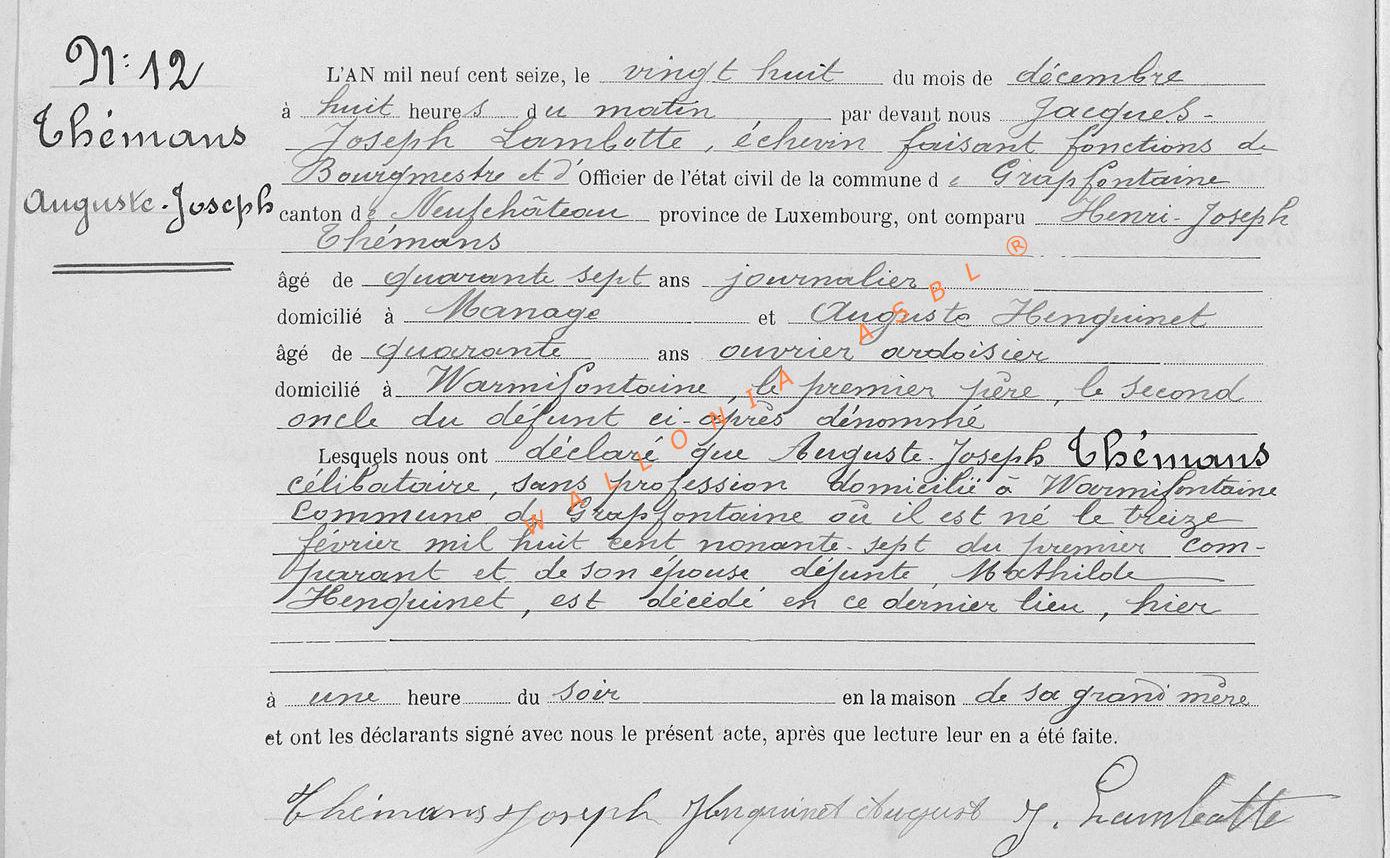 N: 12
Thémans
Auguste-Joseph
L'AN mil neuf cent seize, le vingt huit du mois de décembre
à huit heures du matin par devant nous Jacques-
Joseph Lambotte, échevin faisant fonctions de
Bourgmestre et d' Officier de l'état civil de la commune de Grapfontaine
canton de Neufchâteau province de Luxembourg, ont comparu Henri-Joseph
Thémans
âgé de quarante sept ans journalier
domicilié à Manage et Auguste Henquinet
âgé de quarante ans ouvrier ardoisier
domicilié à Warmifontaine, le premier père, le second
oncle du défunt ci-après dénommé
Lesquels nous ont déclaré que Auguste-Joseph Thémans
célibataire, sans profession domicilié à Warmifontaine
Commune de Grapfontaine où il est né le treize
février mil huit cent nonante-sept du premier com-
parant et de son épouse défunte, Mathilde
Henquinet, est décédé en ce dernier lieu, hier
à une heure du soir en la maison de sa grand mère
et ont les déclarants signé avec nous le présent acte, après que lecture leur en a été faite.
Thémans Joseph Henquinet August J. Lambotte
WALLONIA ASBL ®